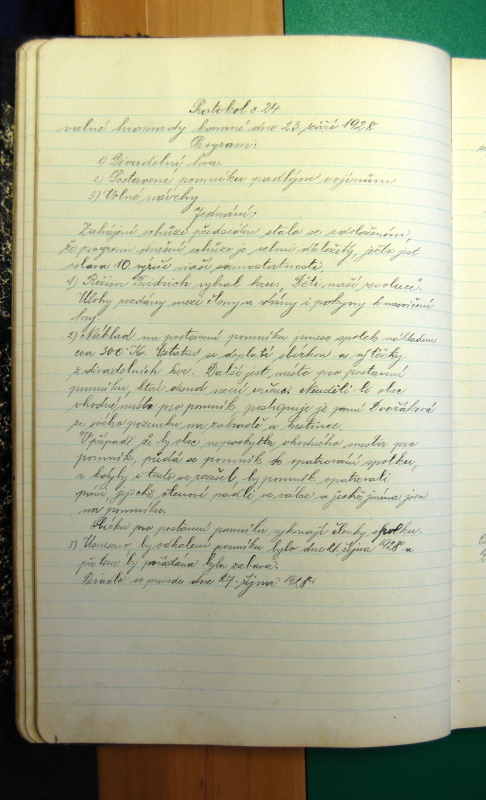 Protokol č 24
valné hromady konané dne 23 září 1928
Program:
1) Divadelní hra.
2) Postavení pomníku padlým vojínům
3) Volné návrhy
Jednání:
Zahájení schůze předsedou stalo se s doložením,
že program dnešní schůze je velmi důležitý, ježto jest
oslava 10. výročí naší samostatnosti.
1) Režisér Fridrich vybral hru: "Děti naší revoluce".
Úlohy rozdány mezi členy a dány i pokyny k nacvičení
hry.
2) Náklad na postavení pomníku ponese spolek nákladem
cca 300 Kč. Ostatní se doplatí sbírkou a výtěžky
z divadelních her. Dalši jest místo pro postavení
pomníku, které dosud není určeno. Neudělí-li obec
vhodné místo pro pomník, postupuje je paní Dvořáková
ze svého pozemku na zahradě u hostince.
V případě že by obec neposkytla vhodného místa pro
pomník, předá se pomník k opatrování spolku,
a kdyby i tento se rozešel, by pomník opatrovali
páni, jejichž členové padli ve válce a jichž jména jsou
na pomníku.
Sbírku pro postavení pomníku vykonají členky spolku.
3) Usneseno by odhalení pomníku bylo dne 28. října 1928 a
při tom by pořádána byla zábava.
Divadlo se provede dne 27. října 1928.